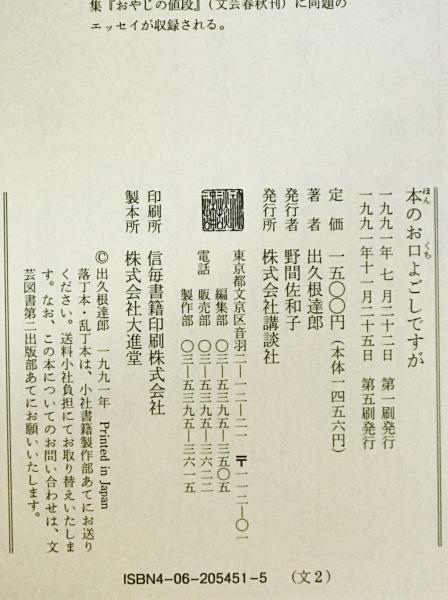 集『おやじの値段』（文芸春秋刊）に問題の
エッセイが収録される。
本のお口よごしですが
ほん
くち
一九九一年 七月二十二日 第一刷発行
一九九一年十一月二十五日 第五刷発行
定価 一五〇〇円（本体一四五六円）
著者 出久根達郎
発行者 野間佐和子
発行所 株式会社講談社
東京都文京区音羽二―一二―二一 〒一一二―〇一
編集部 〇三―五三九五―三五〇五
電話 販売部 〇三―五三九五―三六二二
製作部 〇三―五三九五―三六一五
印刷所 信毎書籍印刷株式会社
製本所 株式会社大進堂
© 出久根達郎 一九九一年 Printed in Japan
落丁本・乱丁本は、小社書籍製作部あてにお送り
ください。送料小社負担にてお取り替えいたしま
す。なお、この本についてのお問い合わせは、文
芸図書第二出版部あてにお願いいたします。
ISBN4-06-205451-5 （文2）